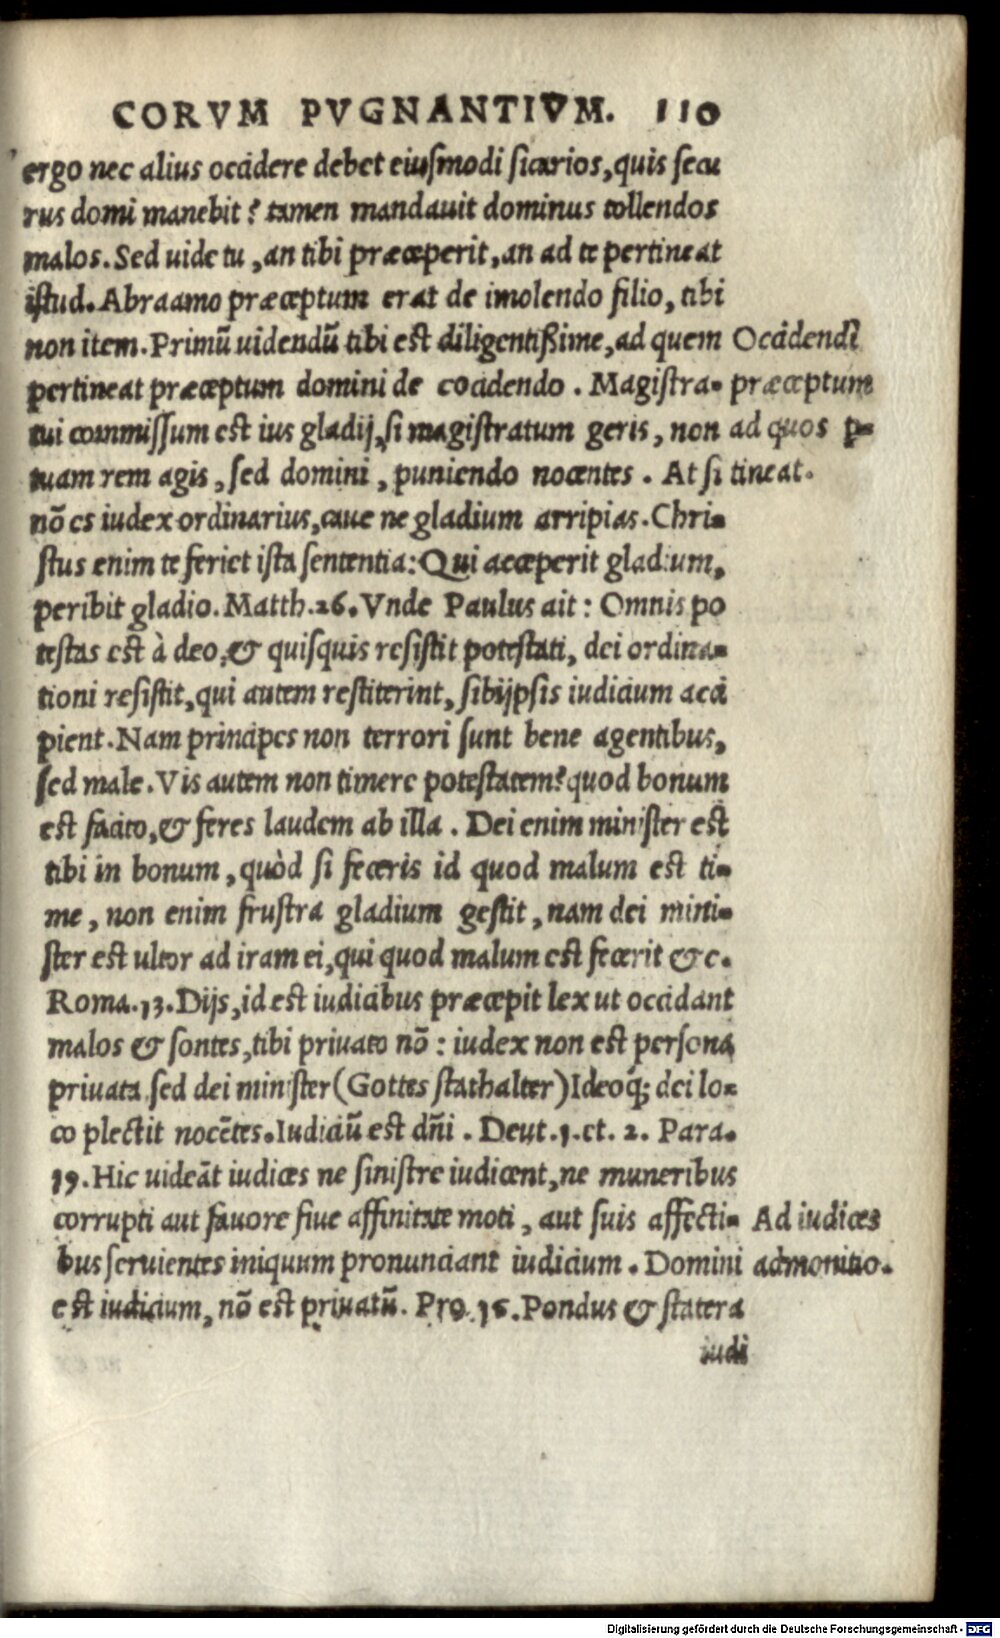 CORVM PVGNANTIVM. 110
ergo nec alius occidere debet eiusmodi sicarios, quis secu
rus domi manebit? tamen mandauit dominus tollendos
malos. Sed uide tu, an tibi præceperit, an ad te pertineat
istud. Abraamo præceptum erat de imolendo filio, tibi
non item. Primū uidendū tibi est diligentißime, ad quem
pertineat præceptum domini de cocidendo. Magistra-
tui commissum est ius gladij, si magistratum geris, non
tuam rem agis, sed domini, puniendo nocentes. At si
nō es iudex ordinarius, caue ne gladium arripias. Chri-
stus enim te feriet ista sententia: Qui acceperit gladium,
peribit gladio. Matth. 26. Vnde Paulus ait: Omnis po
testas est à deo, & quisquis resistit potestati, dei ordina-
tioni resistit, qui autem restiterint, sibijpsis iudicium acci
pient. Nam principes non terrori sunt bene agentibus,
sed male. Vis autem non timere potestatem? quod bonum
est facito, & feres laudem ab illa. Dei enim minister est
tibi in bonum, quòd si feceris id quod malum est ti-
me, non enim frustra gladium gestit, nam dei mini-
ster est ultor ad iram ei, qui quod malum est fecerit &c.
Roma. 13. Dijs, id est iudicibus præcepit lex ut occidant
malos & sontes, tibi priuato nō: iudex non est persona
priuata sed dei minister (Gottes stathalter) Ideoq; dei lo-
co plectit nocētes. Iudiciū est dñi. Deut. 1. et. 2. Para.
19. Hic uideāt iudices ne sinistre iudicent, ne muneribus
corrupti aut fauore siue affinitate moti, aut suis affecti-
bus seruientes iniquum pronunciant iudicium. Domini
est iudicium, nō est priuatū. Pro. 16. Pondus & statera
iudi
Occidendi
præceptum
ad quos per-
tineat.
Ad iudices
admonitio.
Digitalisierung gefördert durch die Deutsche Forschungsgemeinschaft - DFG